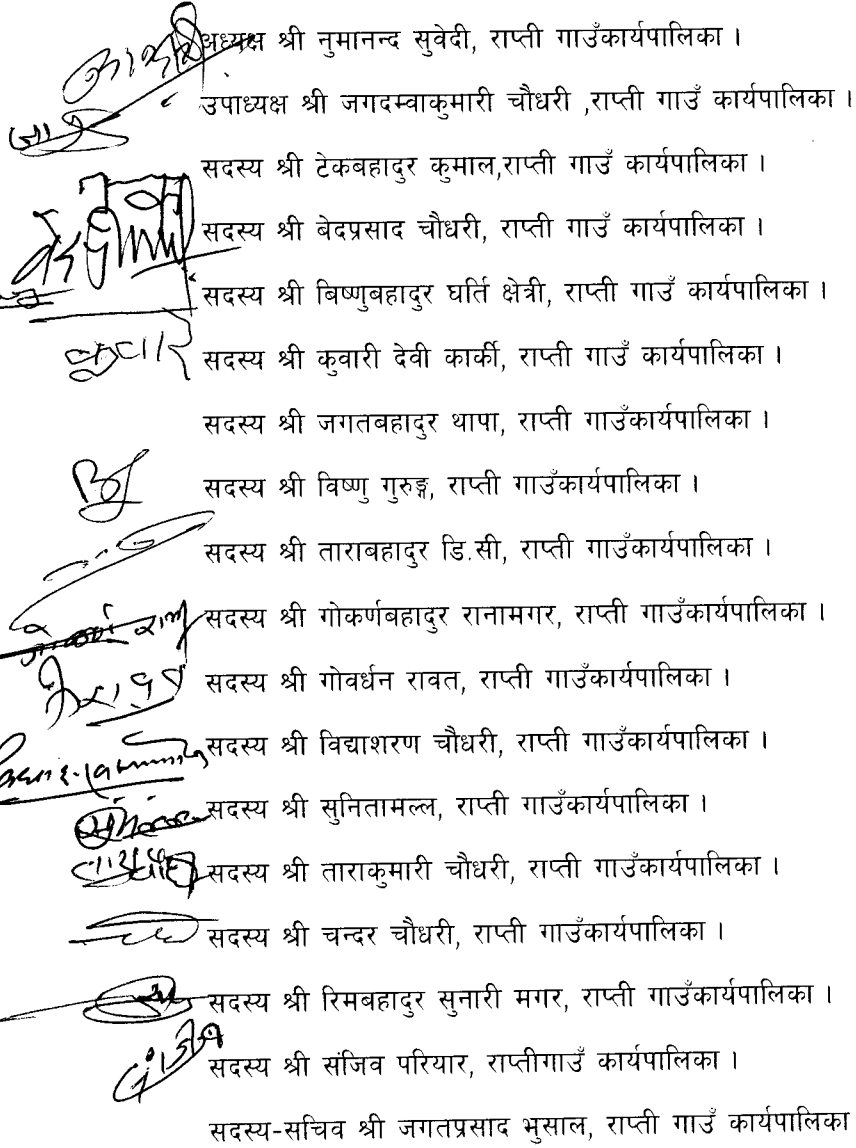 अध्यक्ष श्री नुमानन्द सुवेदी, राप्ती गाउँकार्यपालिका ।
उपाध्यक्ष श्री जगदम्वाकुमारी चौधरी ,राप्ती गाउँ कार्यपालिका ।
सदस्य श्री टेकबहादुर कुमाल,राप्ती गाउँ कार्यपालिका ।
सदस्य श्री बेदप्रसाद चौधरी, राप्ती गाउँ कार्यपालिका ।
सदस्य श्री बिष्णुबहादुर घर्ति क्षेत्री, राप्ती गाउँ कार्यपालिका ।
सदस्य श्री कुवारी देवी कार्की, राप्ती गाउँ कार्यपालिका ।
सदस्य श्री जगतबहादुर थापा, राप्ती गाउँकार्यपालिका ।
सदस्य श्री विष्णु गुरुङ्ग, राप्ती गाउँकार्यपालिका ।
सदस्य श्री ताराबहादुर डि.सी, राप्ती गाउँकार्यपालिका ।
सदस्य श्री गोकर्णबहादुर रानामगर, राप्ती गाउँकार्यपालिका ।
सदस्य श्री गोवर्धन रावत, राप्ती गाउँकार्यपालिका ।
सदस्य श्री विद्याशरण चौधरी, राप्ती गाउँकार्यपालिका ।
सदस्य श्री सुनितामल्ल, राप्ती गाउँकार्यपालिका ।
सदस्य श्री ताराकुमारी चौधरी, राप्ती गाउँकार्यपालिका ।
सदस्य श्री चन्दर चौधरी, राप्ती गाउँकार्यपालिका ।
सदस्य श्री रिमबहादुर सुनारी मगर, राप्ती गाउँकार्यपालिका ।
सदस्य श्री संजिव परियार, राप्तीगाउँ कार्यपालिका ।
सदस्य-सचिव श्री जगतप्रसाद भुसाल, राप्ती गाउँ कार्यपालिका